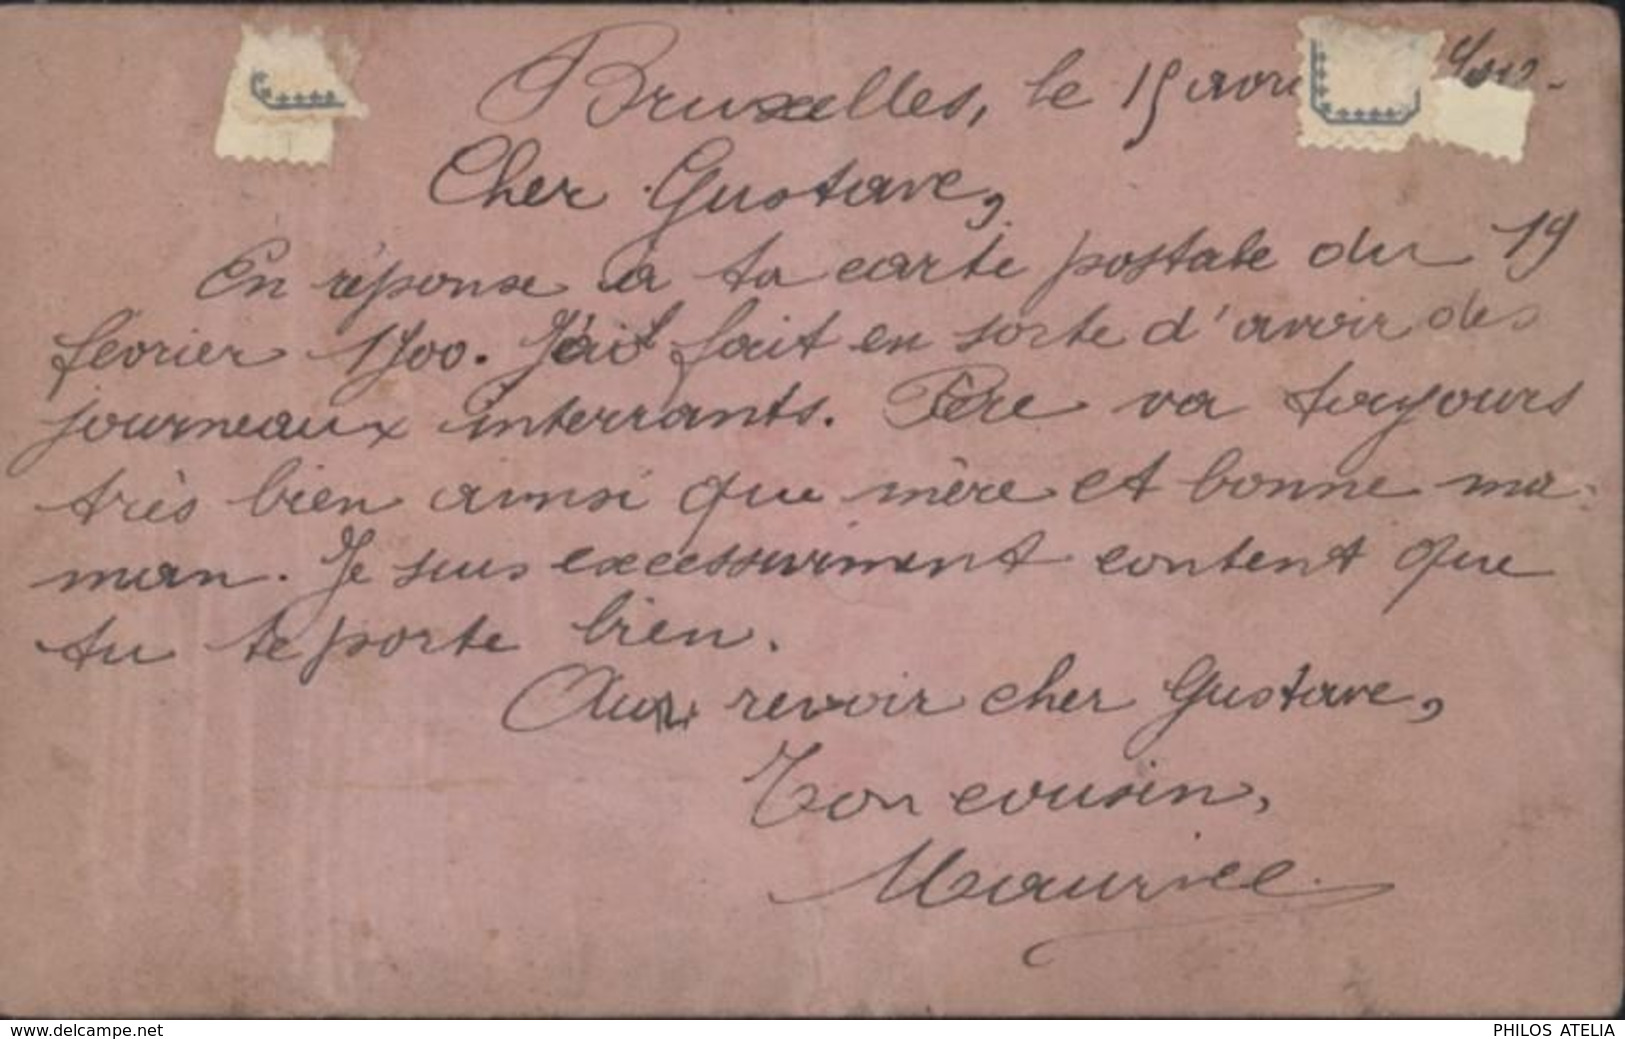 Bruxelles, le 15 avri
Cher Gustave,
En réponse a ta carte postale du 19
février 1900. J'ai fait en sorte d'avoir des
journeaux interrants. Père va toujours
très bien ainsi que mère et bonne ma-
man. Je suis excessiviment content que
tu te porte bien.
Au revoir cher Gustave,
Ton cousin,
Maurice
www.delcampe.net
PHILOS ATELIA